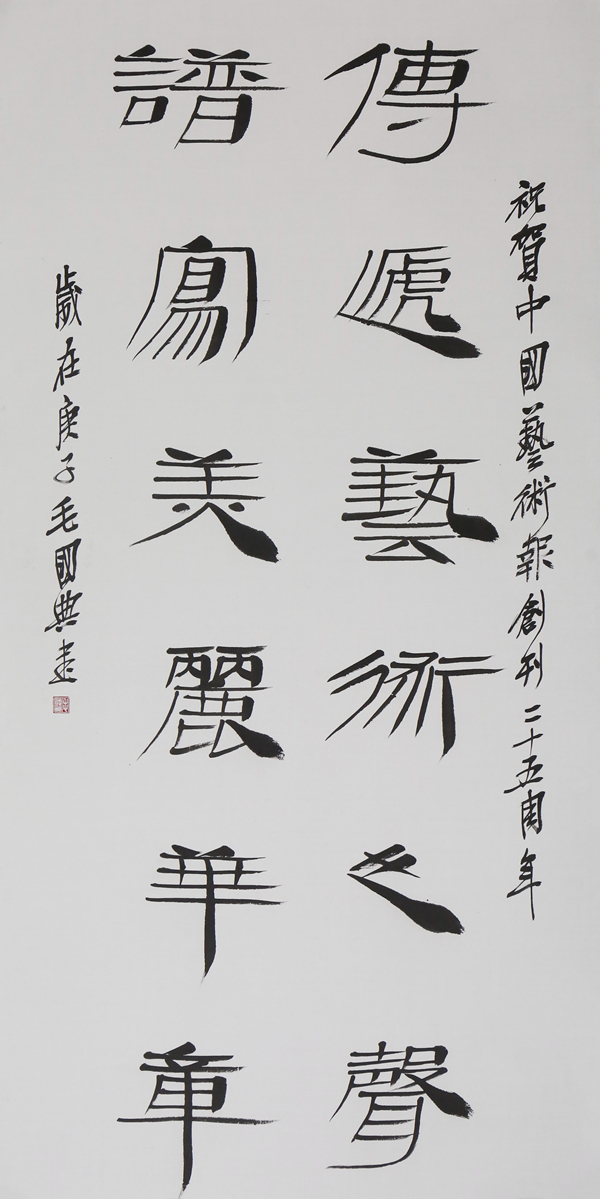 祝賀中國藝術報創刊二十五周年
傳遞藝術之聲
譜寫美麗華章
歲在庚子毛國典書